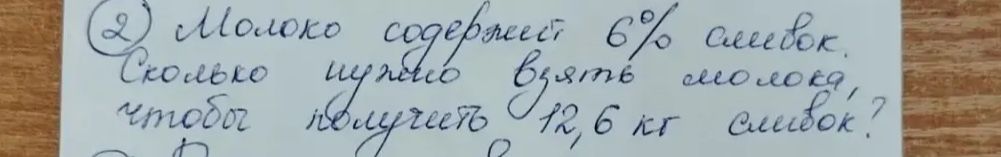 2) Молоко содержит 6% сливок.
Сколько нужно взять молока,
чтобы получить 12,6 кг сливок?